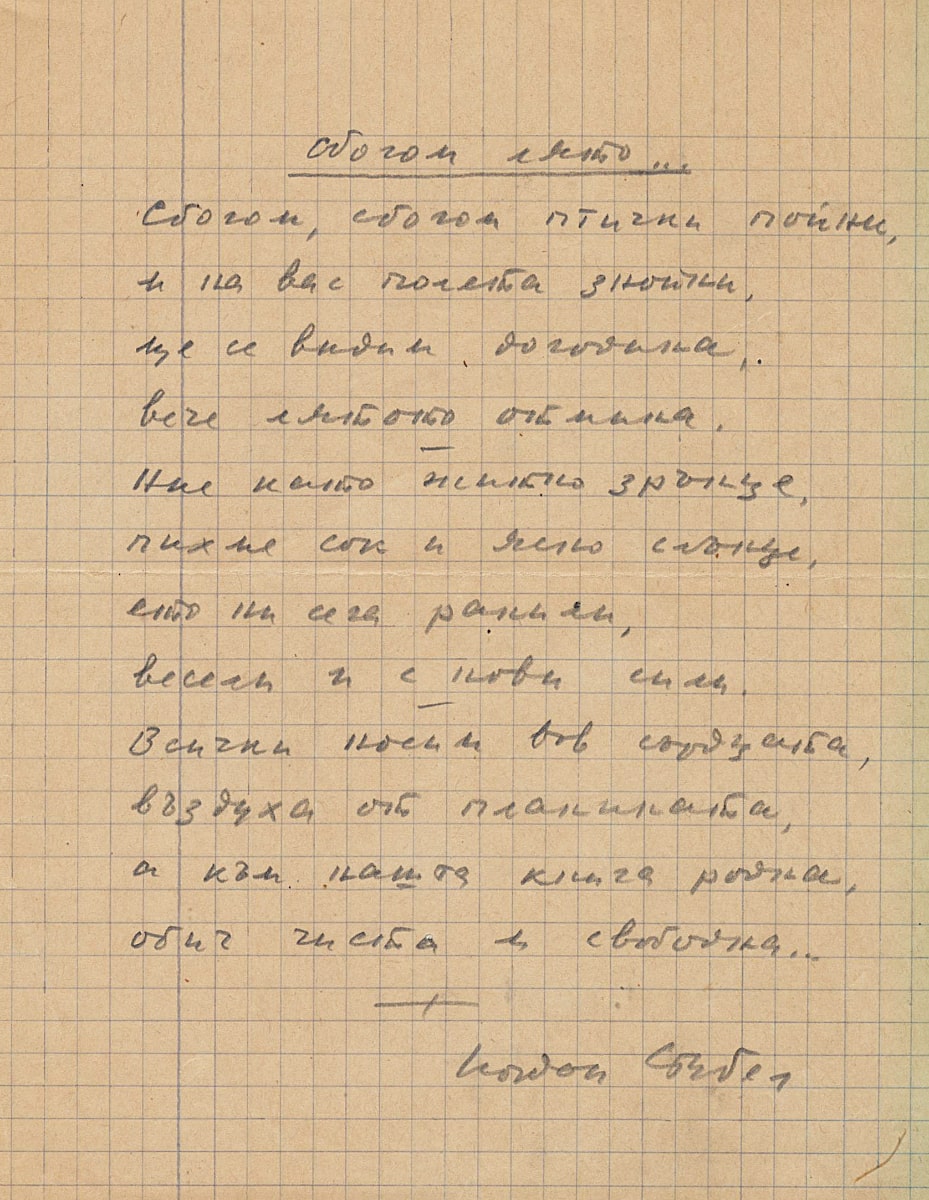 Сбогом лято...
Сбогом, сбогом птички пойни,
и на вас полета знойни,
ще се видим догодина,
вече лятото отмина.
Ние като житно зрънце,
пихме сок и ясно слънце,
ето ни сега ранили,
весели и с нови сили.
Всички носим във сърцата,
въздуха от планината,
а към нашта книга родна,
обич чиста и свободна...
Йордан Стубел